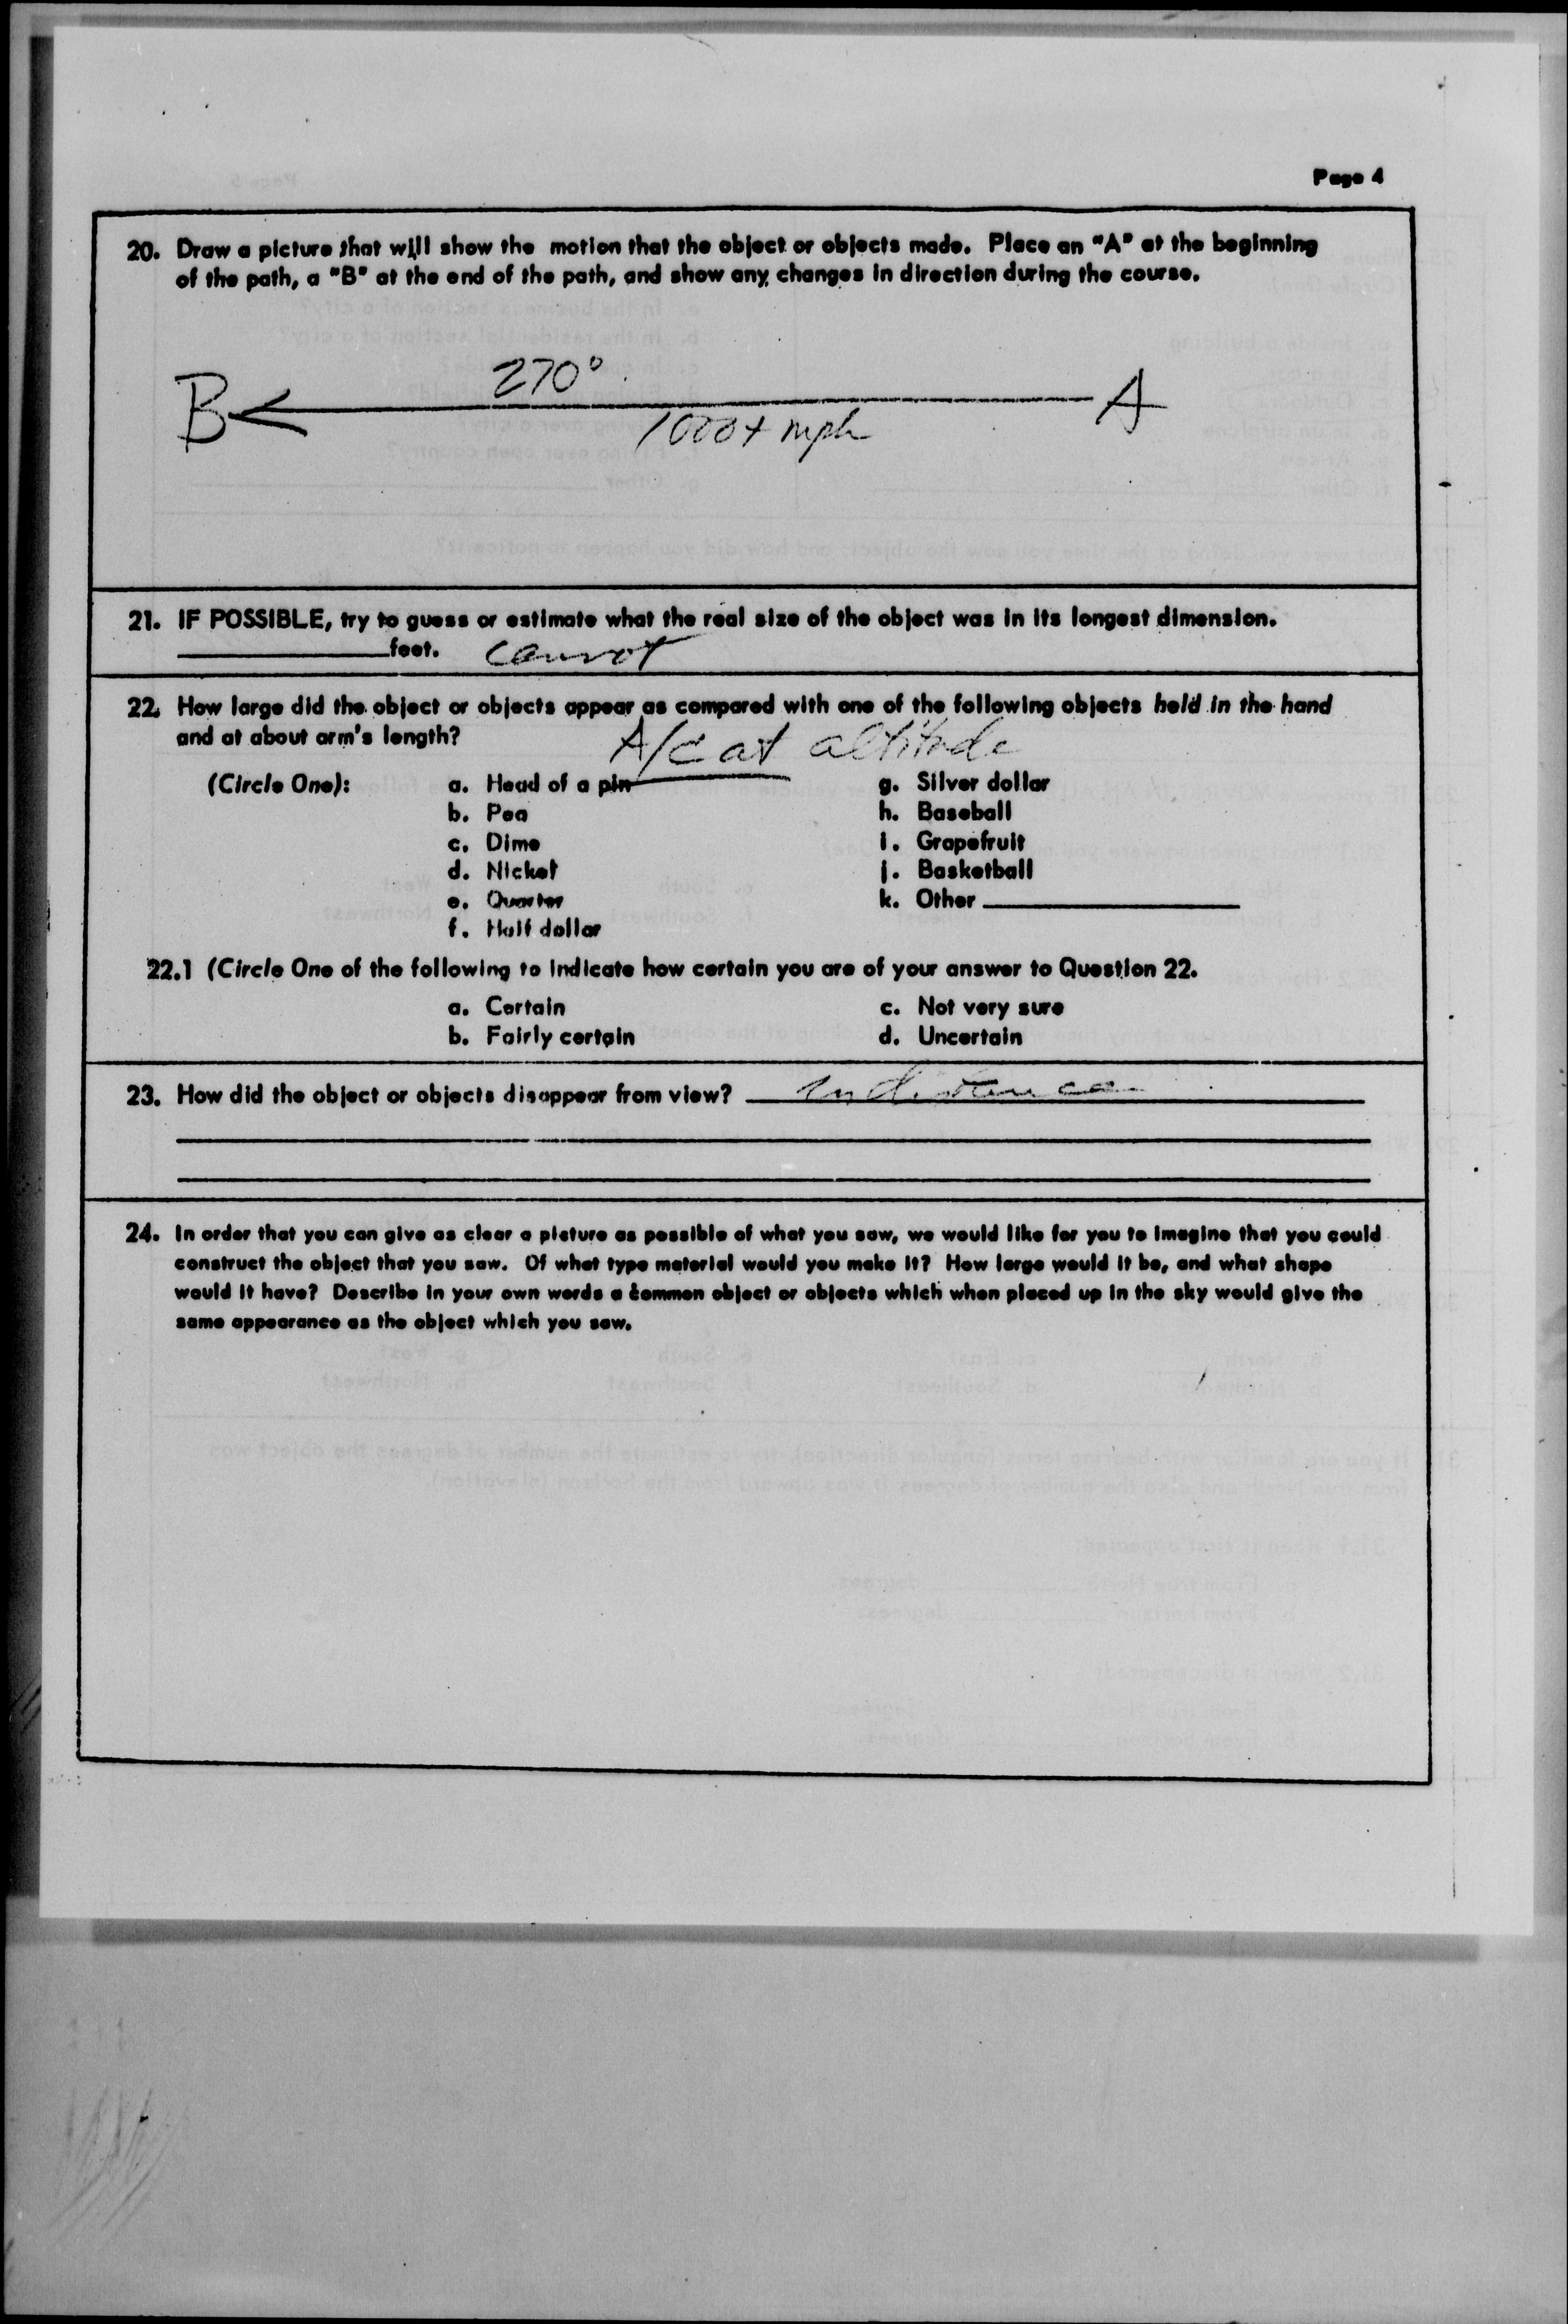 Page 4
20. Draw a picture that will show the motion that the object or objects made. Place an "A" at the beginning
of the path, a "B" at the end of the path, and show any changes in direction during the course.
270°
B A
1000+ mph
21. IF POSSIBLE, try to guess or estimate what the real size of the object was in its longest dimension.
feet. cannot
22. How large did the object or objects appear as compared with one of the following objects held in the hand
and at about arm's length?
A/C at altitude
(Circle One): a. Head of a pin g. Silver dollar
b. Pea h. Baseball
c. Dime i. Grapefruit
d. Nickel j. Basketball
e. Quarter k. Other
f. Half dollar
22.1 (Circle One of the following to indicate how certain you are of your answer to Question 22.
a. Certain c. Not very sure
b. Fairly certain d. Uncertain
23. How did the object or objects disappear from view? in distance
24. In order that you can give as clear a picture as possible of what you saw, we would like for you to imagine that you could
construct the object that you saw. Of what type material would you make it? How large would it be, and what shape
would it have? Describe in your own words a common object or objects which when placed up in the sky would give the
same appearance as the object which you saw.